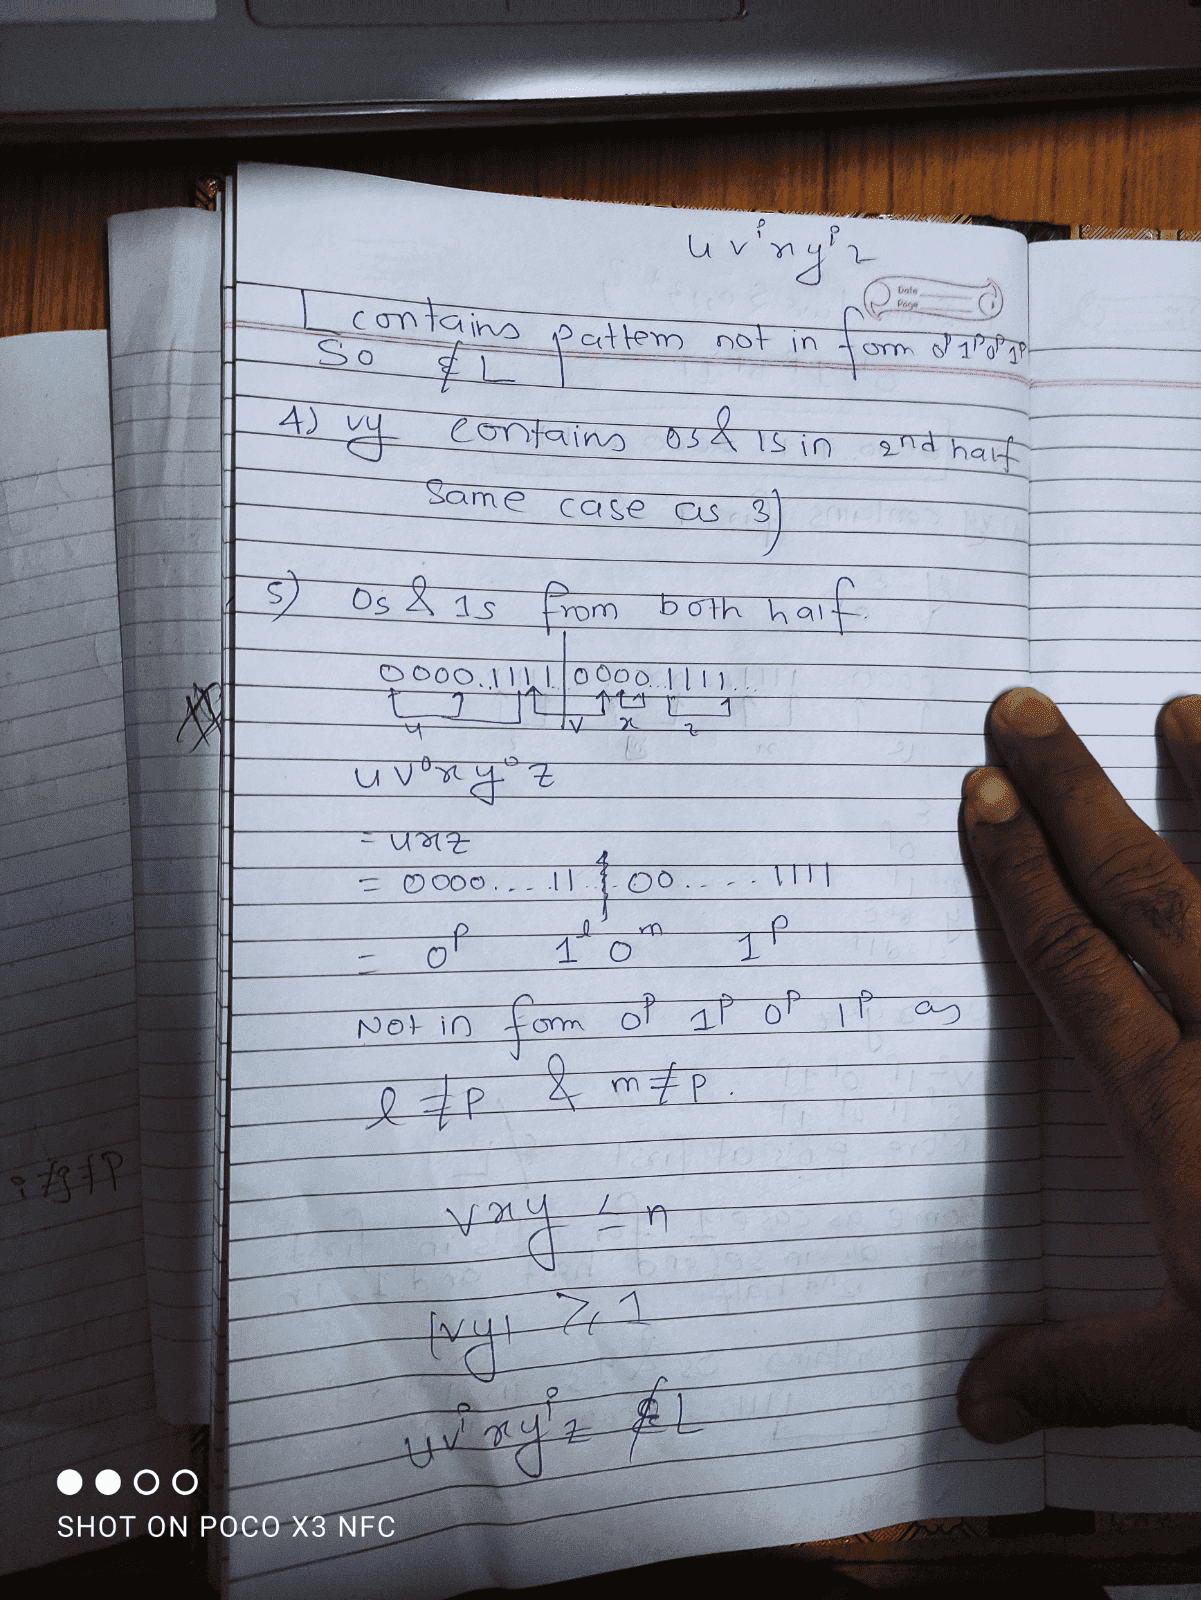 u vⁱ x yⁱ z
Date
Page
L contains pattern not in form 0ᵖ 1ᵖ 0ᵖ 1ᵖ
So ∉ L
4) vy contains 0s & 1s in 2nd half
Same case as 3)
5) 0s & 1s from both half.
0000..1111..|0000..1111...
u v x z
u v⁰ x y⁰ z
= uxz
= 0000...11..|.00....1111
= 0ᵖ 1ˡ 0ᵐ 1ᵖ
Not in form 0ᵖ 1ᵖ 0ᵖ 1ᵖ as
l ≠ p & m ≠ p.
i ≠ j ≠ p
vxy ≤ n
|vy| ≥ 1
u vⁱ x yⁱ z ∉ L
SHOT ON POCO X3 NFC